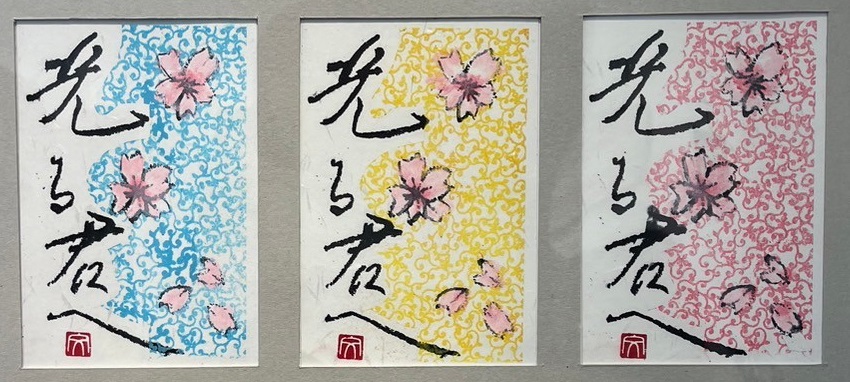 光る君へ
光る君へ
光る君へ